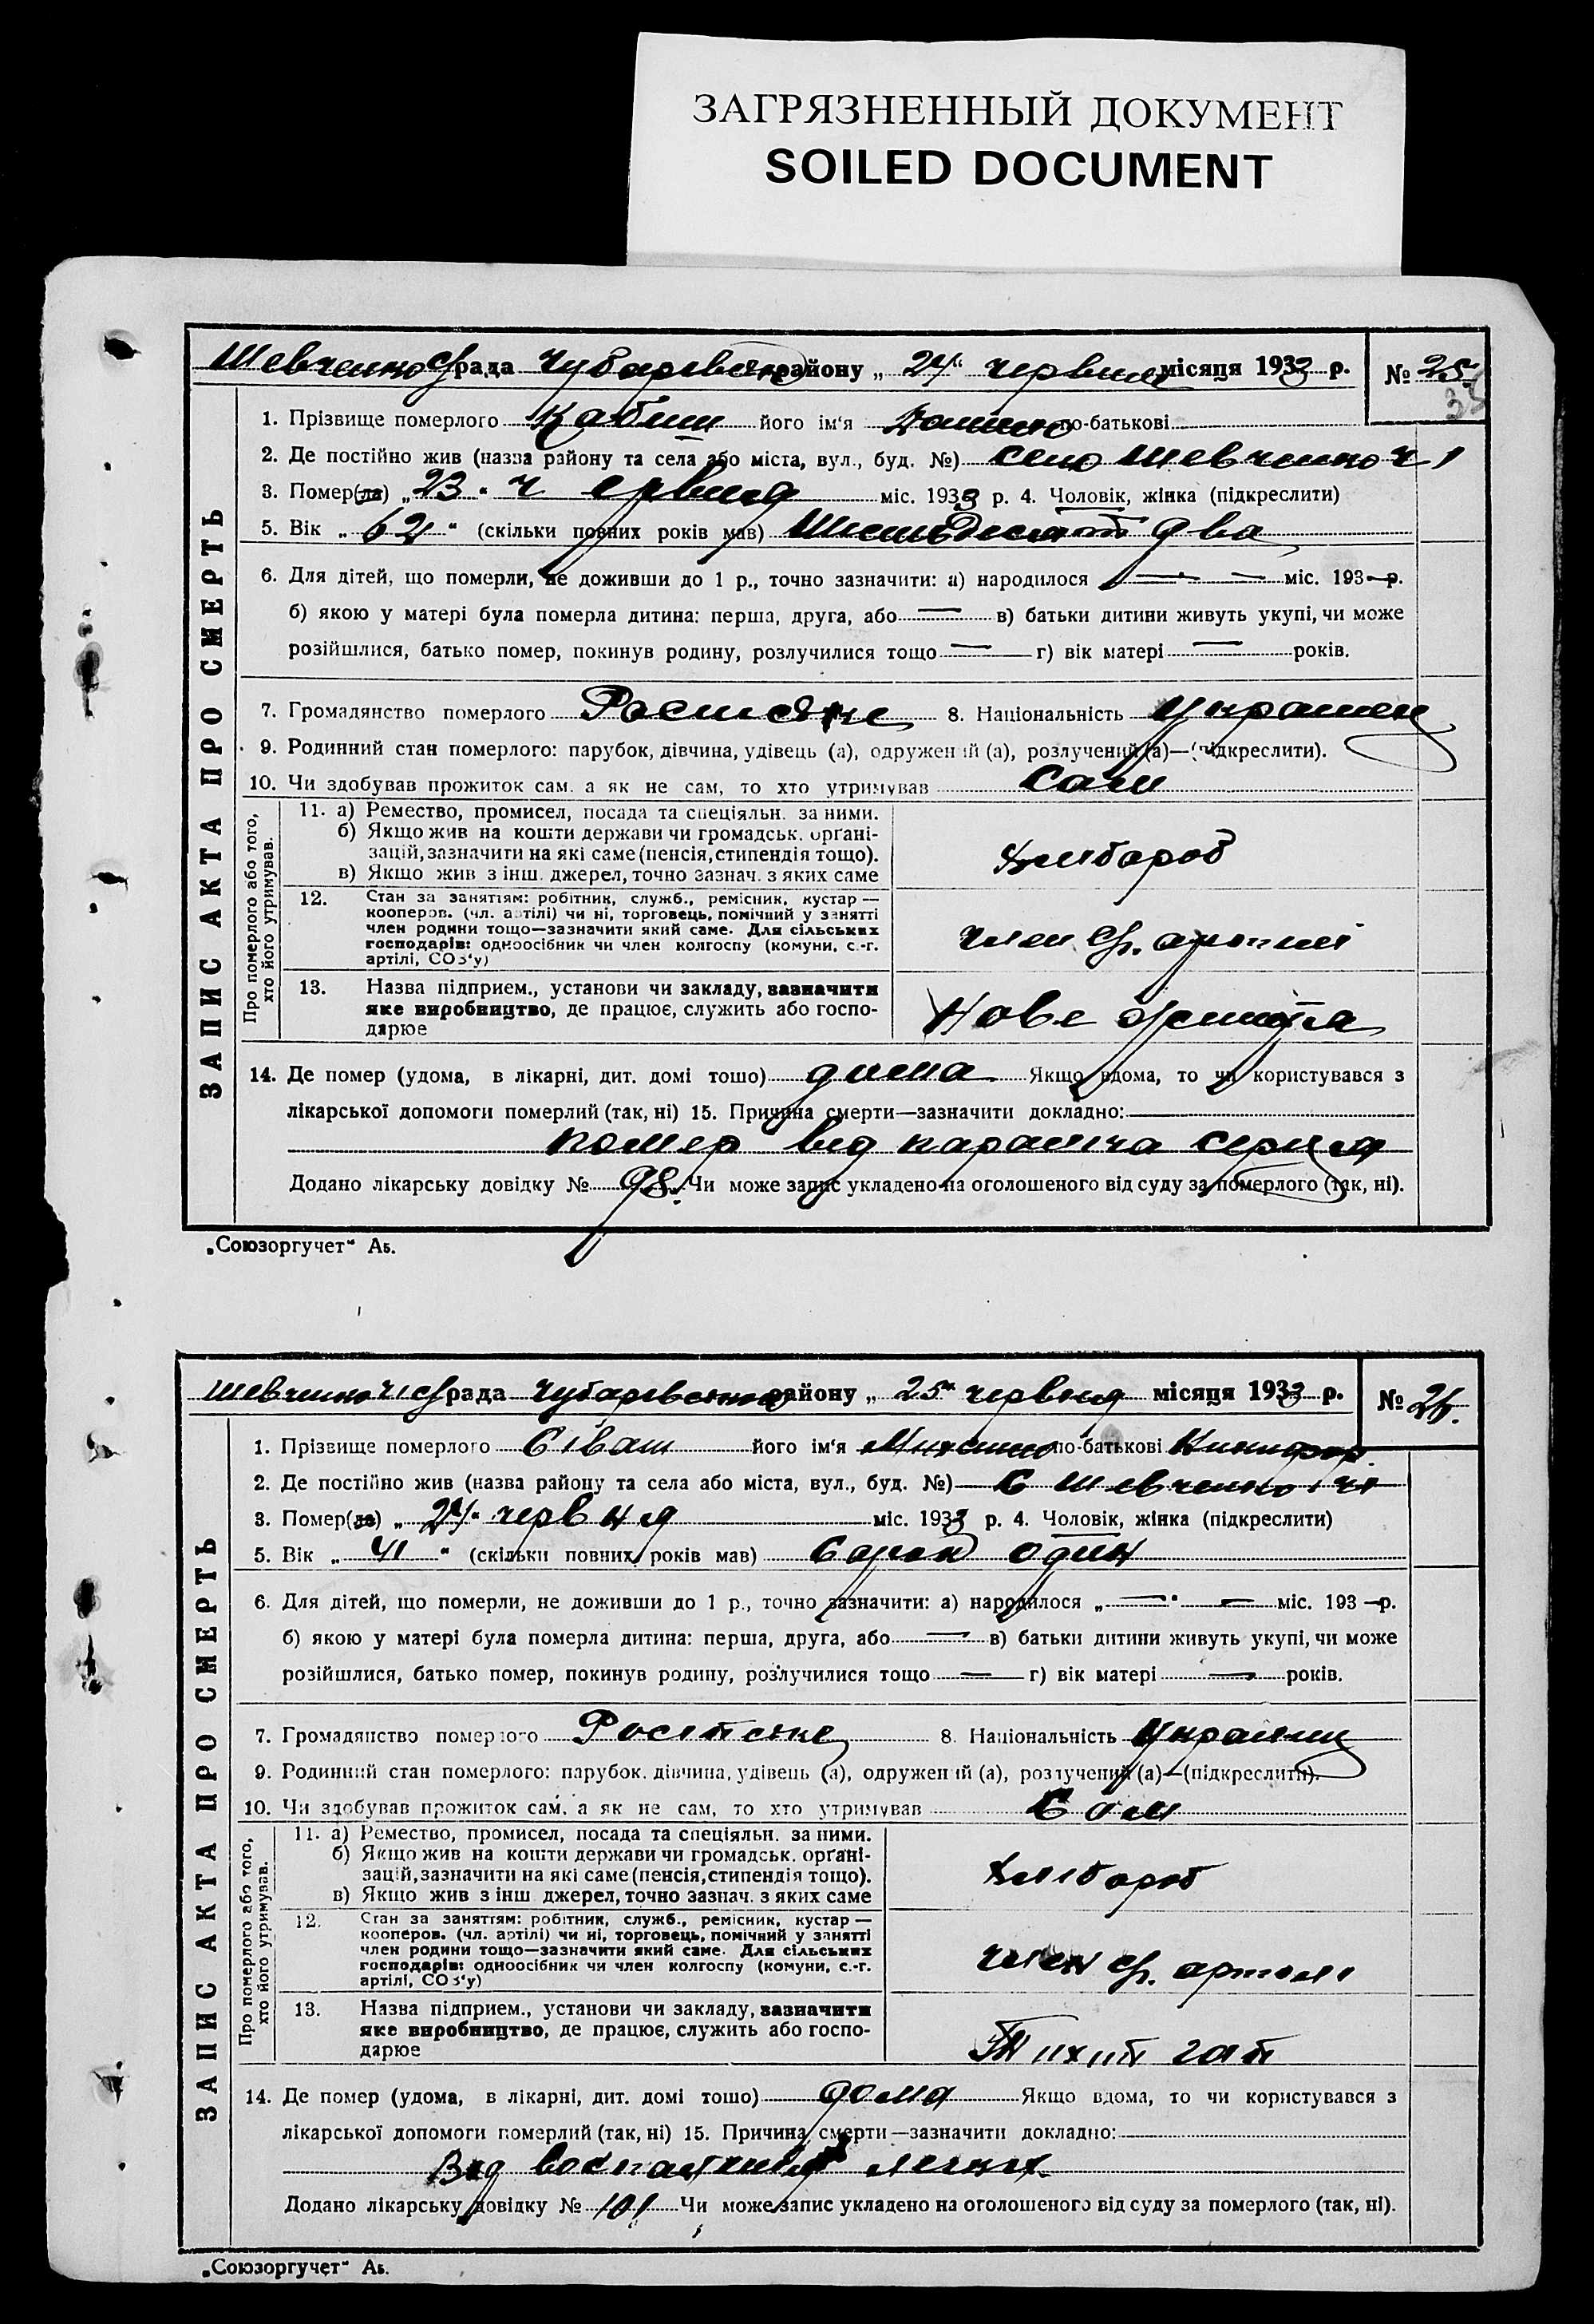 ЗАГРЯЗНЕННЫЙ ДОКУМЕНТ
SOILED DOCUMENT
Шевченко с/рада Чубаревского району „24“ червня місяця 1933 р. № 25.
35
1. Прізвище померлого Кабиш його ім'я Данило по-батькові
2. Де постійно жив (назва району та села або міста, вул., буд. №) село Шевченко ч 1
3. Помер(ла) „23“ червня міс. 1933 р. 4. Чоловік, жінка (підкреслити)
5. Вік „62“ (скільки повних років мав) Шисьдесят два
6. Для дітей, що померли, не доживши до 1 р., точно зазначити: а) народилося — — міс. 193—р.
б) якою у матері була померла дитина: перша, друга, або — в) батьки дитини живуть укупі, чи може
розійшлися, батько помер, покинув родину, розлучилися тощо — г) вік матері — років.
7. Громадянство померлого 8. Національність Украинец
9. Родинний стан померлого: парубок, дівчина, удівець (а), одружений (а), розлучений (а)—(підкреслити).
10. Чи здобував прожиток сам. а як не сам, то хто утримував Сам
ЗАПИС АКТА ПРО СМЕРТЬ
Про померлого або того, хто його утримував.
11. а) Ремество, промисел, посада та спеціяльн. за ними.
б) Якщо жив на кошти держави чи громадськ. орґані-
зацій, зазначити на які саме (пенсія, стипендія тощо).
в) Якщо жив з інш. джерел, точно зазнач. з яких саме
хлибороб
12. Стан за заняттям: робітник, служб., ремісник, кустар —
кооперов. (чл. артілі) чи ні, торговець, помічний у занятті
член родини тощо—зазначити який саме. Для сільських
господарів: одноосібник чи член колгоспу (комуни, с.-г.
артілі, СОЗ'у)
член с/г. артилі
13. Назва підприєм., установи чи закладу, зазначити
яке виробництво, де працює, служить або госпо-
дарює
Нове життя
14. Де помер (удома, в лікарні, дит. домі тощо) дома Якщо вдома, то чи користувався з
лікарської допомоги померлий (так, ні) 15. Причина смерти—зазначити докладно:
помер від параліча серця
Додано лікарську довідку № 98. Чи може запис укладено на оголошеного від суду за померлого (так, ні).
„Союзоргучет“ Аб.
Шевченко ч1 с/рада Чубаревского району „25“ червня місяця 1933 р. № 26.
1. Прізвище померлого Сіваш його ім'я Михайло по-батькові Никифор.
2. Де постійно жив (назва району та села або міста, вул., буд. №) С Шевченко ч1
3. Помер(ла) „24“ червня міс. 1933 р. 4. Чоловік, жінка (підкреслити)
5. Вік „41“ (скільки повних років мав) Сорок один
6. Для дітей, що померли, не доживши до 1 р., точно зазначити: а) народилося „—“ — міс. 193—р.
б) якою у матері була померла дитина: перша, друга, або — в) батьки дитини живуть укупі, чи може
розійшлися, батько помер, покинув родину, розлучилися тощо — г) вік матері — років.
7. Громадянство померлого Російське 8. Національність Украинец
9. Родинний стан померлого: парубок. дівчина, удівець (а), одружений (а), розлучений (а)—(підкреслити).
10. Чи здобував прожиток сам, а як не сам, то хто утримував Сам
ЗАПИС АКТА ПРО СМЕРТЬ
Про померлого або того, хто його утримував.
11. а) Ремество, промисел, посада та спеціяльн. за ними.
б) Якщо жив на кошти держави чи громадськ. орґані-
зацій, зазначити на які саме (пенсія, стипендія тощо).
в) Якщо жив з інш. джерел, точно зазнач. з яких саме
хлибороб
12. Стан за заняттям: робітник, служб., ремісник, кустар —
кооперов. (чл. артілі) чи ні, торговець, помічний у занятті
член родини тощо—зазначити який саме. Для сільських
господарів: одноосібник чи член колгоспу (комуни, с.-г.
артілі, СОЗ'у)
член с/г. артилі
13. Назва підприєм., установи чи закладу, зазначити
яке виробництво, де працює, служить або госпо-
дарює
Тихий гай
14. Де помер (удома, в лікарні, дит. домі тощо) дома Якщо вдома, то чи користувався з
лікарської допомоги померлий (так, ні) 15. Причина смерти—зазначити докладно:
Від воспаления легких
Додано лікарську довідку № 101 Чи може запис укладено на оголошеного від суду за померлого (так, ні).
„Союзоргучет“ Аб.